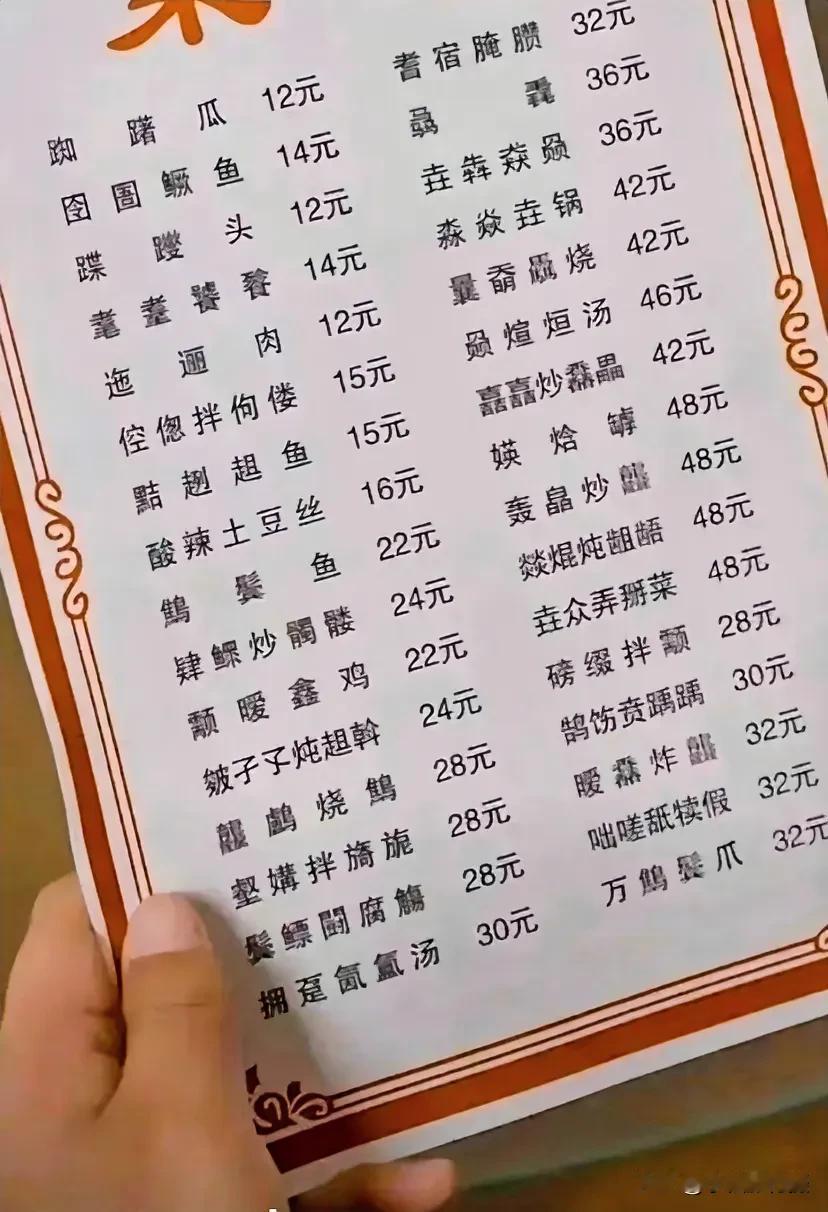 躇瓜 12元
囹圄鳜鱼 14元
蹀躞头 12元
耄耋饕餮 14元
迤逦肉 12元
倥偬拌佝偻 15元
黠趔趄鱼 15元
酸辣土豆丝 16元
鬓鱼 22元
肄鳏炒髑髅 24元
颥暧鑫鸡 22元
皴孑孓炖趄斡 24元
龘鸬烧 28元
壑媾拌旖旎 28元
鬓鳔阋腐觞 28元
拥趸氤氲汤 30元
耆宿腌臜 32元
骉 36元
垚犇猋赑 36元
淼焱垚锅 42元
烧 42元
赑煊烜汤 46元
嚞嚞炒 42元
媖焓罅 48元
轰皛炒龘 48元
燚焜炖龃龉 48元
垚众弄掰菜 48元
磅缀拌颥 28元
鹄饬贲踽踽 30元
暧炸龘 32元
咄嗟舐犊假 32元
万鬓爪 32元